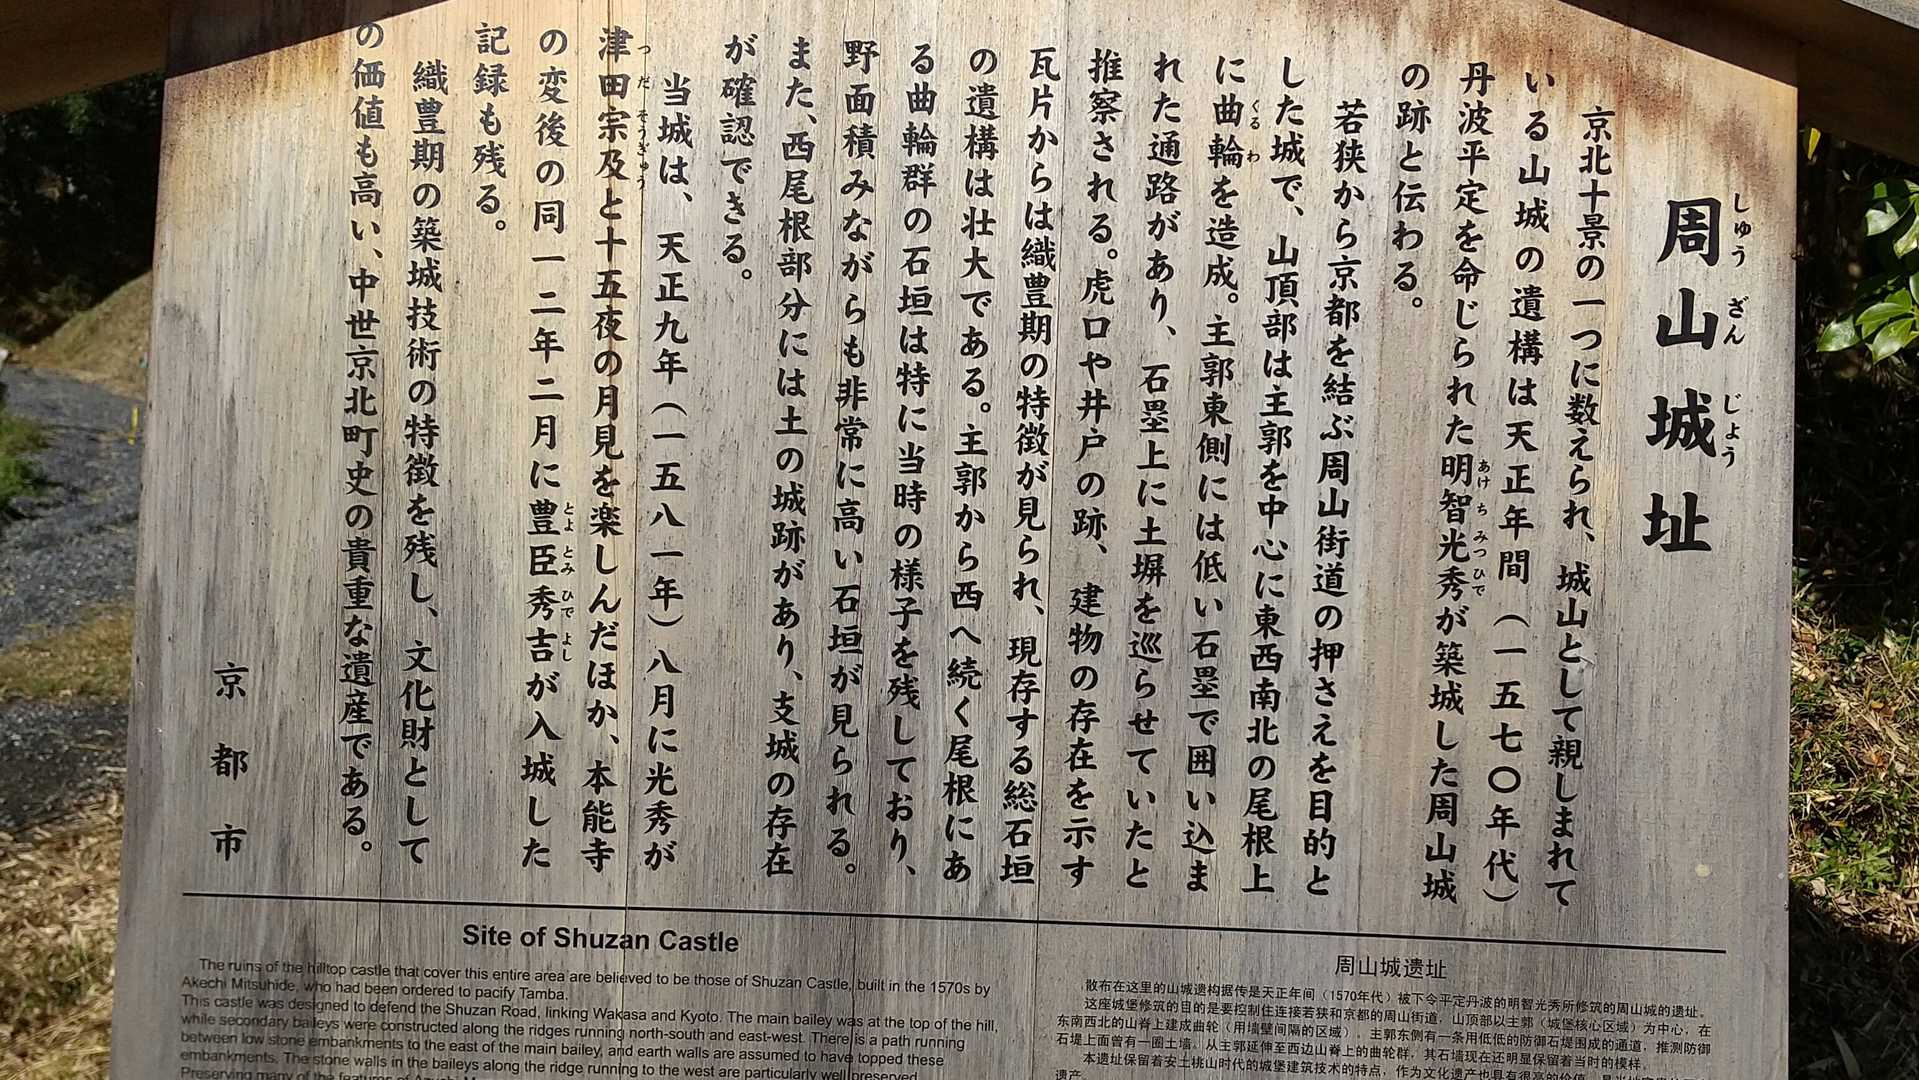 周山城址
しゅう ざん じょう
京北十景の一つに数えられ、城山として親しまれて
いる山城の遺構は天正年間（一五七〇年代）
丹波平定を命じられた明智光秀が築城した周山城
あけ ち みつ ひで
の跡と伝わる。
若狭から京都を結ぶ周山街道の押さえを目的と
した城で、山頂部は主郭を中心に東西南北の尾根上
に曲輪を造成。主郭東側には低い石塁で囲い込ま
くる わ
れた通路があり、石塁上に土塀を巡らせていたと
推察される。虎口や井戸の跡、建物の存在を示す
瓦片からは織豊期の特徴が見られ、現存する総石垣
の遺構は壮大である。主郭から西へ続く尾根にあ
る曲輪群の石垣は特に当時の様子を残しており、
野面積みながらも非常に高い石垣が見られる。
また、西尾根部分には土の城跡があり、支城の存在
が確認できる。
当城は、天正九年（一五八一年）八月に光秀が
津田宗及と十五夜の月見を楽しんだほか、本能寺
つ だ そうぎゅう
の変後の同一二年二月に豊臣秀吉が入城した
とよ とみ ひで よし
記録も残る。
織豊期の築城技術の特徴を残し、文化財として
の価値も高い、中世京北町史の貴重な遺産である。
京都市
Site of Shuzan Castle
The ruins of the hilltop castle that cover this entire area are believed to be those of Shuzan Castle, built in the 1570s by
Akechi Mitsuhide, who had been ordered to pacify Tamba.
This castle was designed to defend the Shuzan Road, linking Wakasa and Kyoto. The main bailey was at the top of the hill,
while secondary baileys were constructed along the ridges running north-south and east-west. There is a path running
between low stone embankments to the east of the main bailey, and earth walls are assumed to have topped these
embankments. The stone walls in the baileys along the ridge running to the west are particularly well preserved.
Preserving many of the features of
周山城遗址
散布在这里的山城遗构据传是天正年间（1570年代）被下令平定丹波的明智光秀所修筑的周山城的遗址。
这座城堡修筑的目的是要控制住连接若狭和京都的周山街道，山顶部以主郭（城堡核心区域）为中心，在
东南西北的山脊上建成曲轮（用墙壁间隔的区域），主郭东侧有一条用低低的防御石堤围成的通道，推测防御
石堤上面曾有一圈土墙。从主郭延伸至西边山脊上的曲轮群，其石墙现在还明显保留着当时的模样。
本遗址保留着安土桃山时代的城堡建筑技术的特点，作为文化遗产也具有很高的价值，是
遗产。